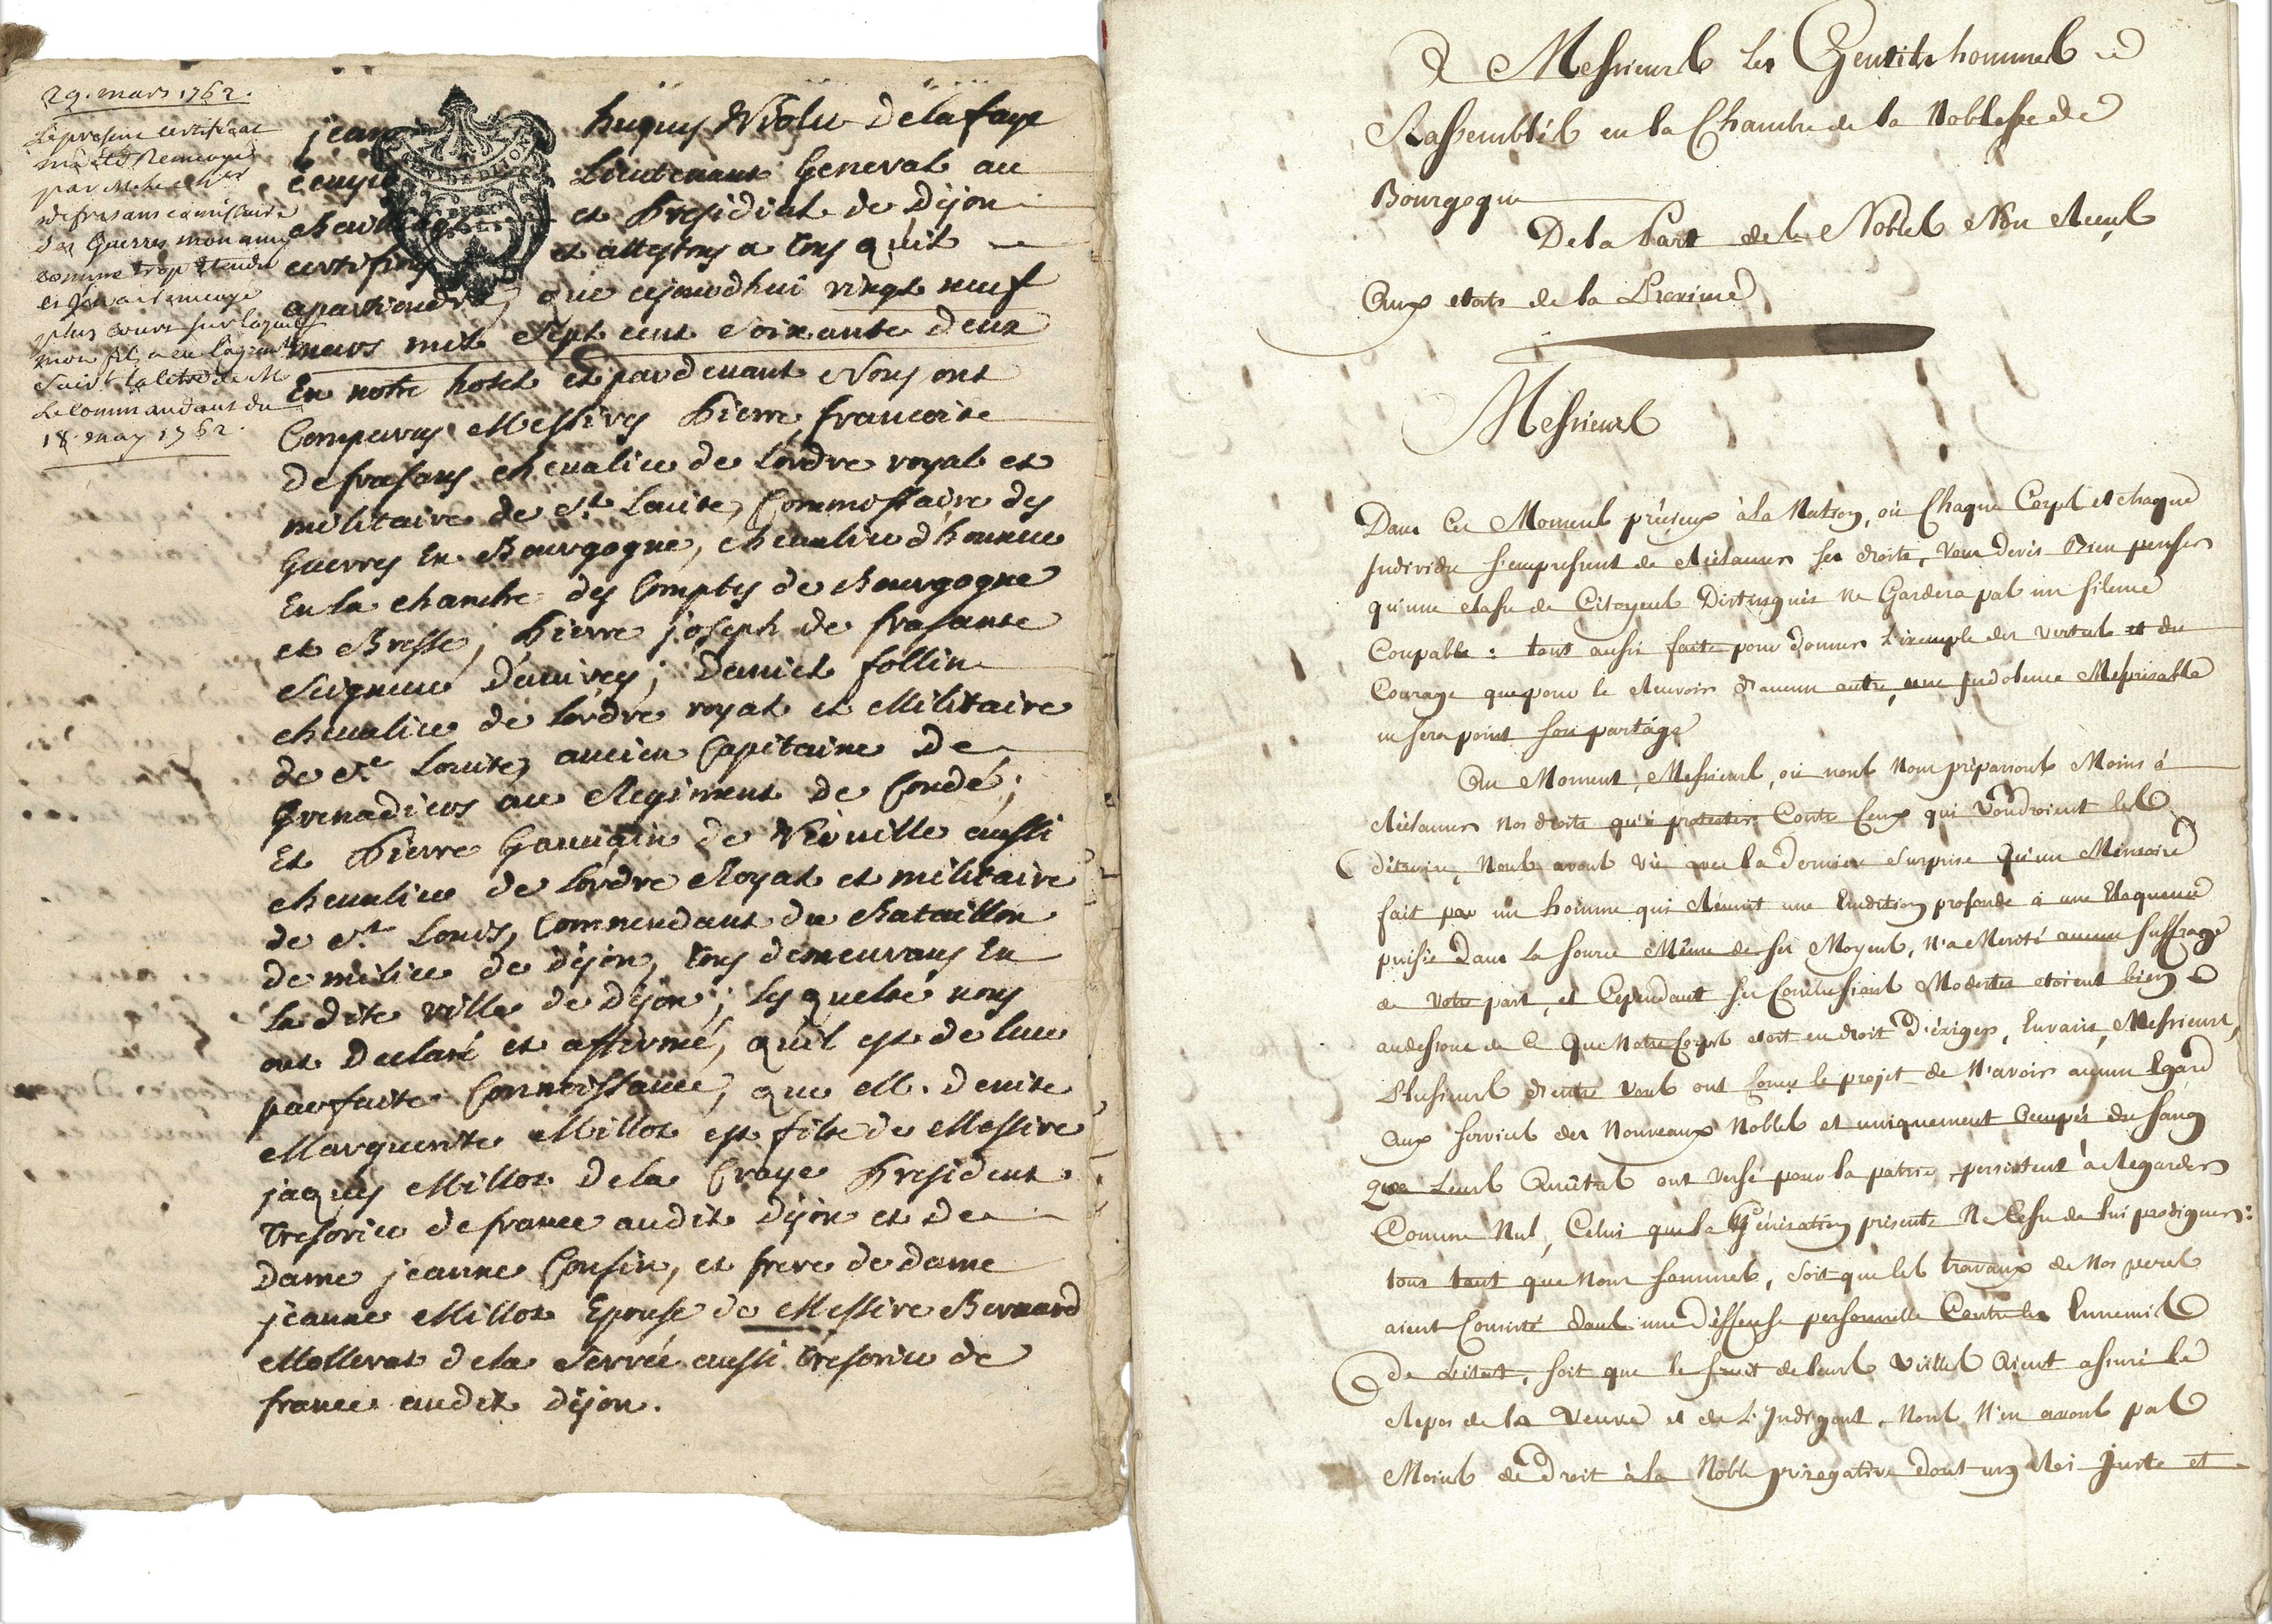 29. mars 1762.
Le present certificat
m'a eté Renvoyé
par M. le cher
defrasans commissaire
des Guerres mon amy
comme trop etendu
et j'en ai envoyé
plus court sur lequel
mon fils a eu l'agrement
suivt la lettre de M
Le Commandant du
18. may 1762.
jean hugues Violet Delafaye
Ecuyer Lieutenant General au
Bailliage et Presidial de Dijon
certifions et attestons a tous qu'il
apartiendra, que cejourdhui vingt neuf
mars mil sept cent soixante deux
En notre hotel et pardevant Nous ont
Comparus Messires Pierre francois
de frasans chevalier de Lordre royal et
militaire de St. Louis, Commissaire des
Guerres En Bourgogne, chevalier d'honneur
En la chambre des Comptes de Bourgogne
et Bresse; Pierre joseph de frasans
Seigneur d'auirey; Daniel follin
chevalier de Lordre royal et Militaire
de St. Louis, ancien Capitaine de
Grenadiers au Regiment de Condé;
Et Pierre Gauvain de Viéville aussi
chevalier de Lordre Royal et militaire
de St. Louis, Commendant du Bataillon
de milice de Dijon, tous demeurans En
La dite ville de Dijon; Lesquels nous
ont Declaré et affirmé, qu'il est de leur
parfaite Connoissance, que M. Denis
Marguerite Millot est fils de Messire
jaques Millot de la Craye President
Tresorier de france audit Dijon et de
Dame jeanne Cousin, et frere de dame
jeanne Millot Epouse de Messire Bernard
Mollerat de la Serrée aussi tresorier de
france audit Dijon.
A Messieurs Les Gentils hommes
Rassemblés en la Chambre de la Noblesse de
Bourgogne
De la Part des Nobles Non Reçus
Aux etats de la Province
Messieurs
Dans Ce Moment précieux à la Nation, où Chaque Corps et chaque
Individu s'empressent de Réclamer ses droits, Vous devés Bien penser
qu'une classe de Citoyens Distingués Ne Gardera pas un silence
Coupable: tout aussi faite pour donner L'exemple des vertus et du
Courage que pour le Recevoir d'aucun autre, une Indolence Meprisable
ne sera point son partage
Au Moment, Messieurs, où nous Nous préparons Moins à
Réclamer Nos droits qu'à protester Contre Ceux qui Voudroient les
détruire, Nous avons Vû avec la Derniere Surprise Qu'un Mémoire
fait par un homme qui Réunit une Erudition profonde à une Eloquence
puisée Dans La source Même de ses Moyens, N'a Merité aucun suffrage
de Votre part, et Cependant ses Conclusions Modestes etoient bien
audessous de Ce Que Notre Corps etoit en droit D'éxiger, Envain, Messieurs,
Plusieurs d'entre Vous ont Conçu le projet de N'avoir aucun Egard
Aux services des Nouveaux Nobles et uniquement Occupés du sang
Que Leurs Ancêtres ont Versé pour la patrie, persistent à Regarder
Comme Nul, Celui que la Génération présente Ne Cesse de lui prodiguer:
tous tant que Nous sommes, soit que les travaux de Nos peres
aient Consisté dans une Déffense personnelle Contre les Ennemis
De L'état, soit que le fruit de leurs Veilles Aient assuré le
Repos de la Veuve et de L'Indigent, Nous N'en avons pas
Moins de Droit à la Noble prérogative dont un Roi juste et